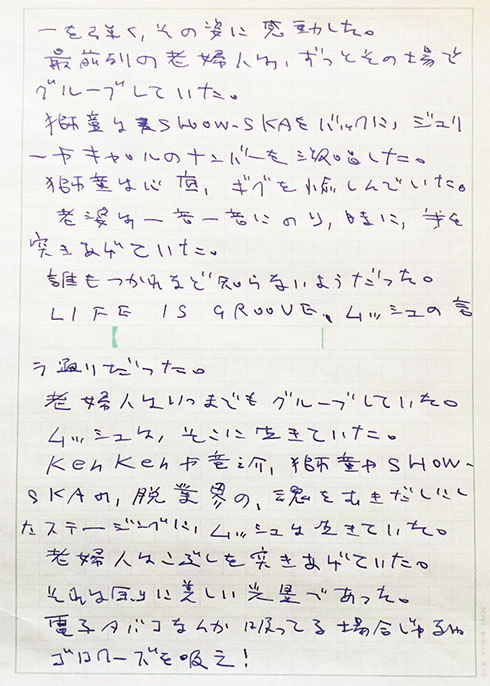 ーを弾く、その姿に感動した。
最前列の老婦人は、ずっとその場で
グルーブしていた。
獅童はSHOW-SKAをバックに、ジュリ
ーやキャロルのナンバーを熱唱した。
獅童は心底、ギグを愉しんでいた。
老婆は一音一音にのり、時に、拳を
突きあげていた。
誰もつかれなど知らないようだった。
LIFE IS GROOVE、ムッシュの言
う通りだった。
老婦人はいつまでもグルーブしていた。
ムッシュは、そこに生きていた。
KenKenや竜之介、獅童やSHOW-
SKAの、脱業界の、魂をむきだしにし
たステージングに、ムッシュは生きていた。
老婦人はこぶしを突きあげていた。
それは余りに美しい光景であった。
電子タバコなんか吸ってる場合じゃねぇ
ゴロワーズを吸え！